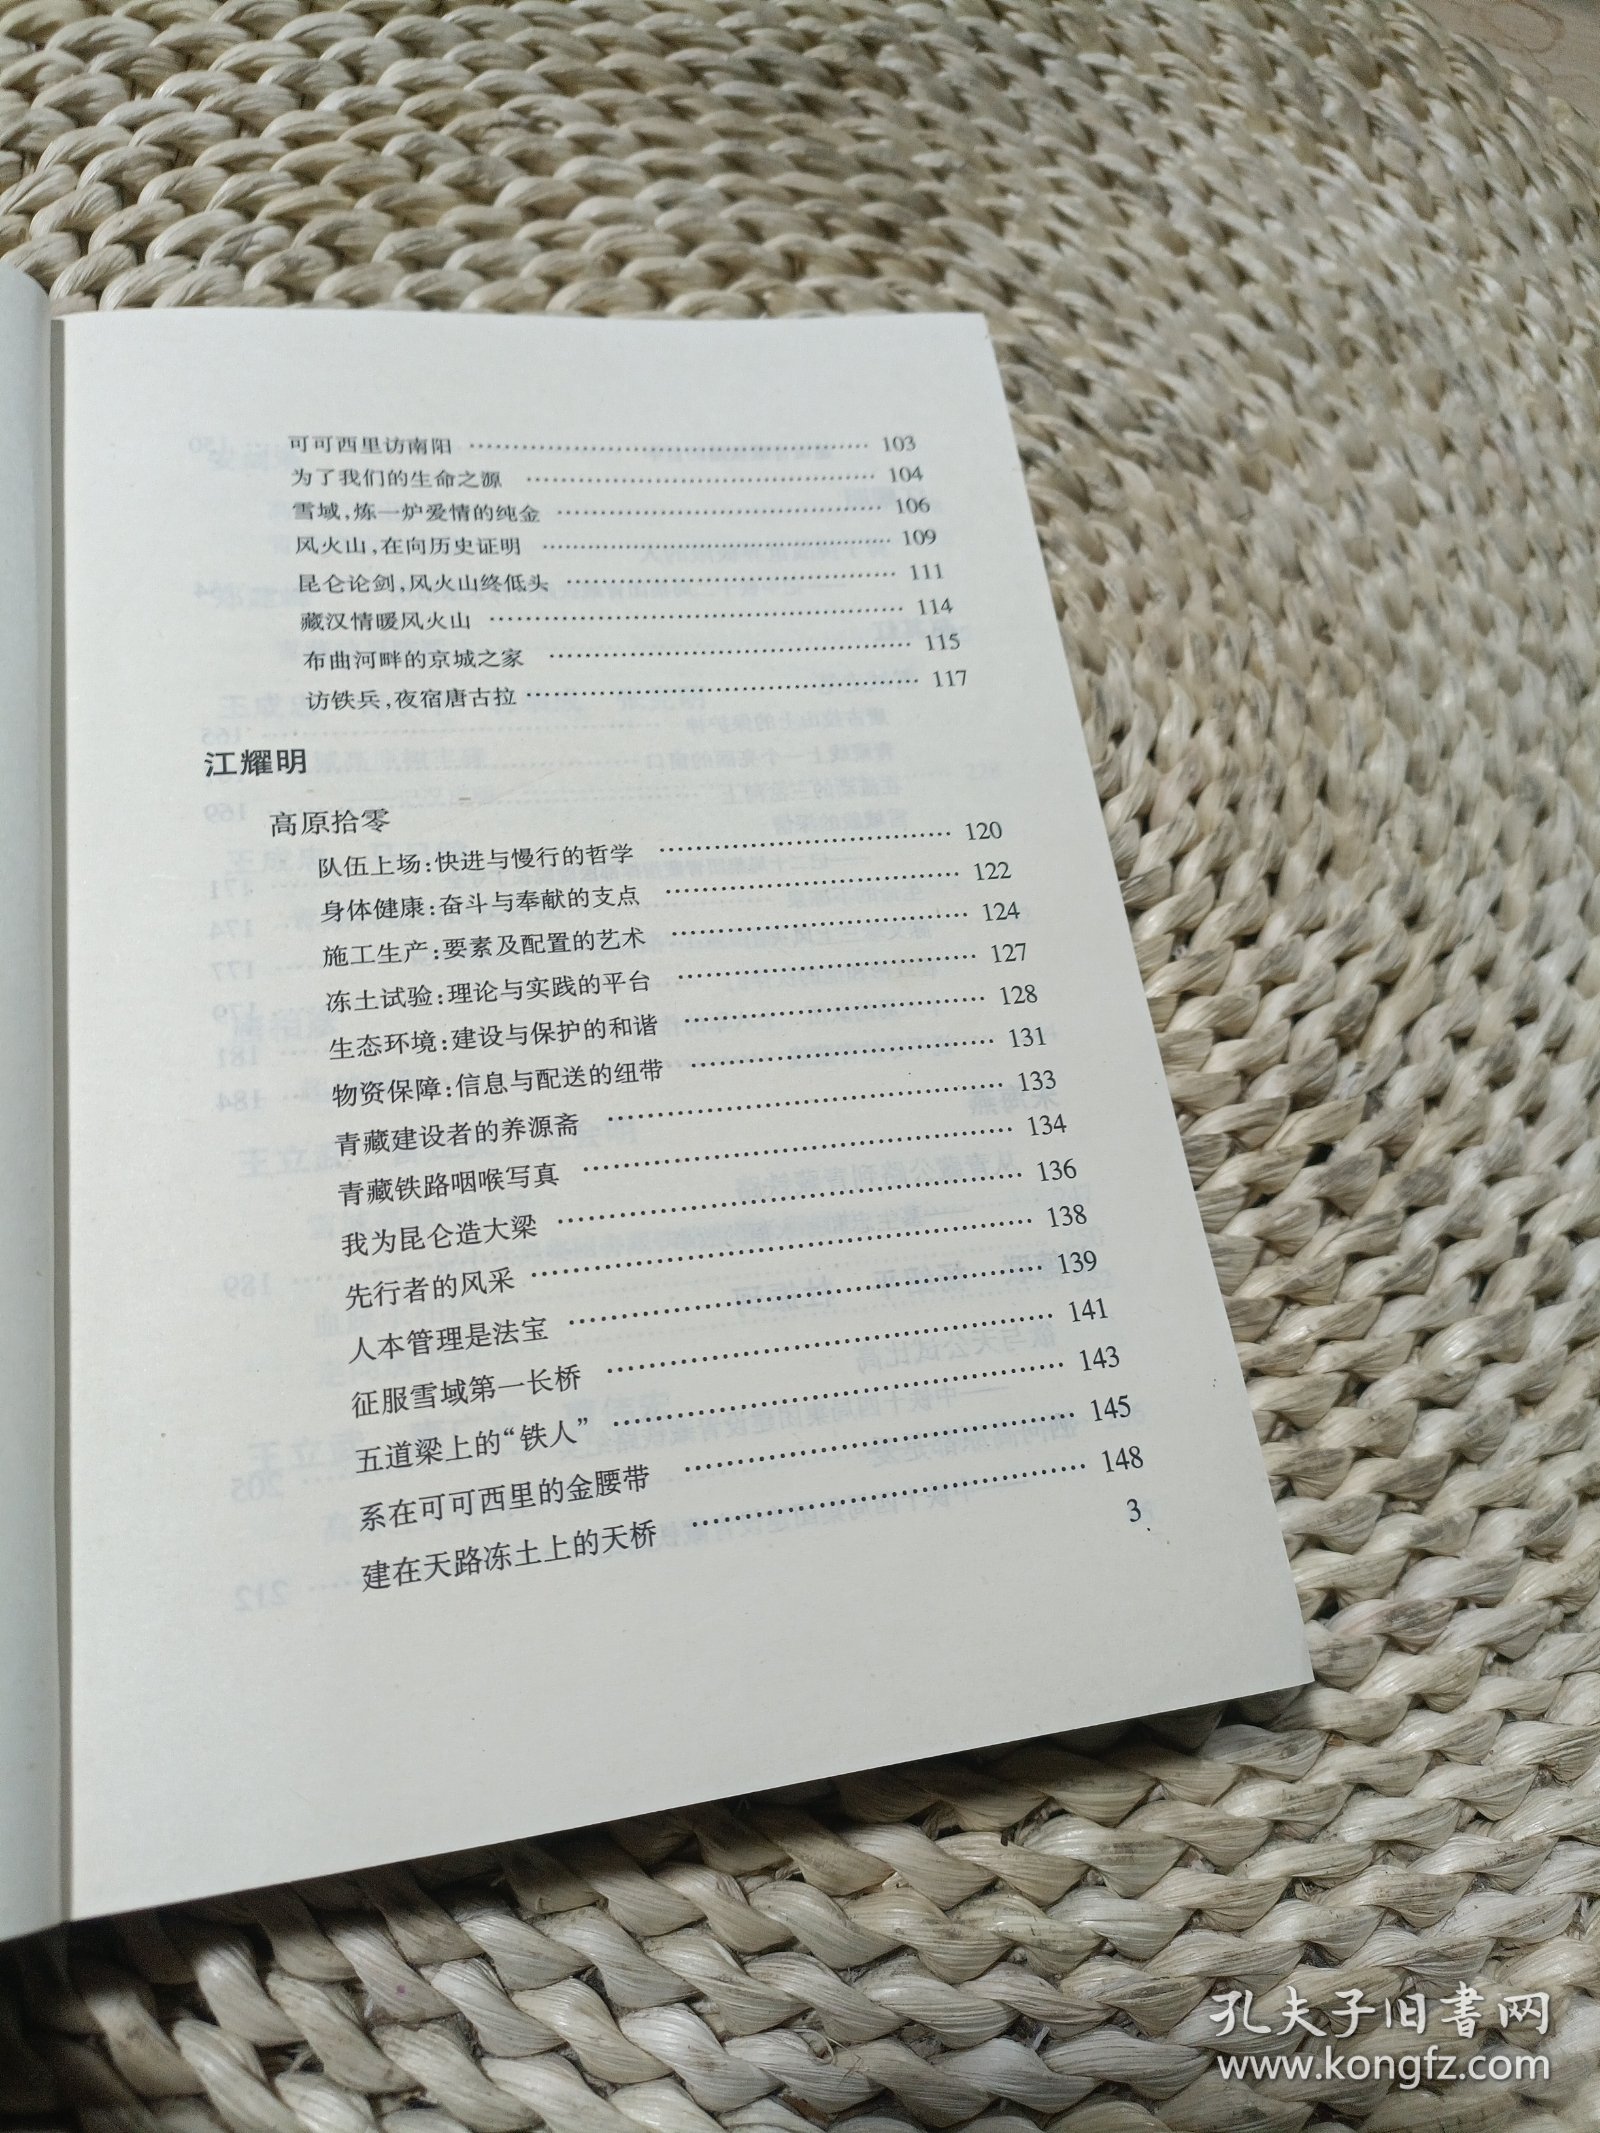 可可西里访南阳 …… 103
为了我们的生命之源 …… 104
雪域,炼一炉爱情的纯金 …… 106
风火山,在向历史证明 …… 109
昆仑论剑,风火山终低头 …… 111
藏汉情暖风火山 …… 114
布曲河畔的京城之家 …… 115
访铁兵,夜宿唐古拉 …… 117
江耀明
高原拾零
队伍上场:快进与慢行的哲学 …… 120
身体健康:奋斗与奉献的支点 …… 122
施工生产:要素及配置的艺术 …… 124
冻土试验:理论与实践的平台 …… 127
生态环境:建设与保护的和谐 …… 128
物资保障:信息与配送的纽带 …… 131
青藏建设者的养源斋 …… 133
青藏铁路咽喉写真 …… 134
我为昆仑造大梁 …… 136
先行者的风采 …… 138
人本管理是法宝 …… 139
征服雪域第一长桥 …… 141
五道梁上的“铁人” …… 143
系在可可西里的金腰带 …… 145
建在天路冻土上的天桥 …… 148
3
孔夫子旧书网
www.kongfz.com